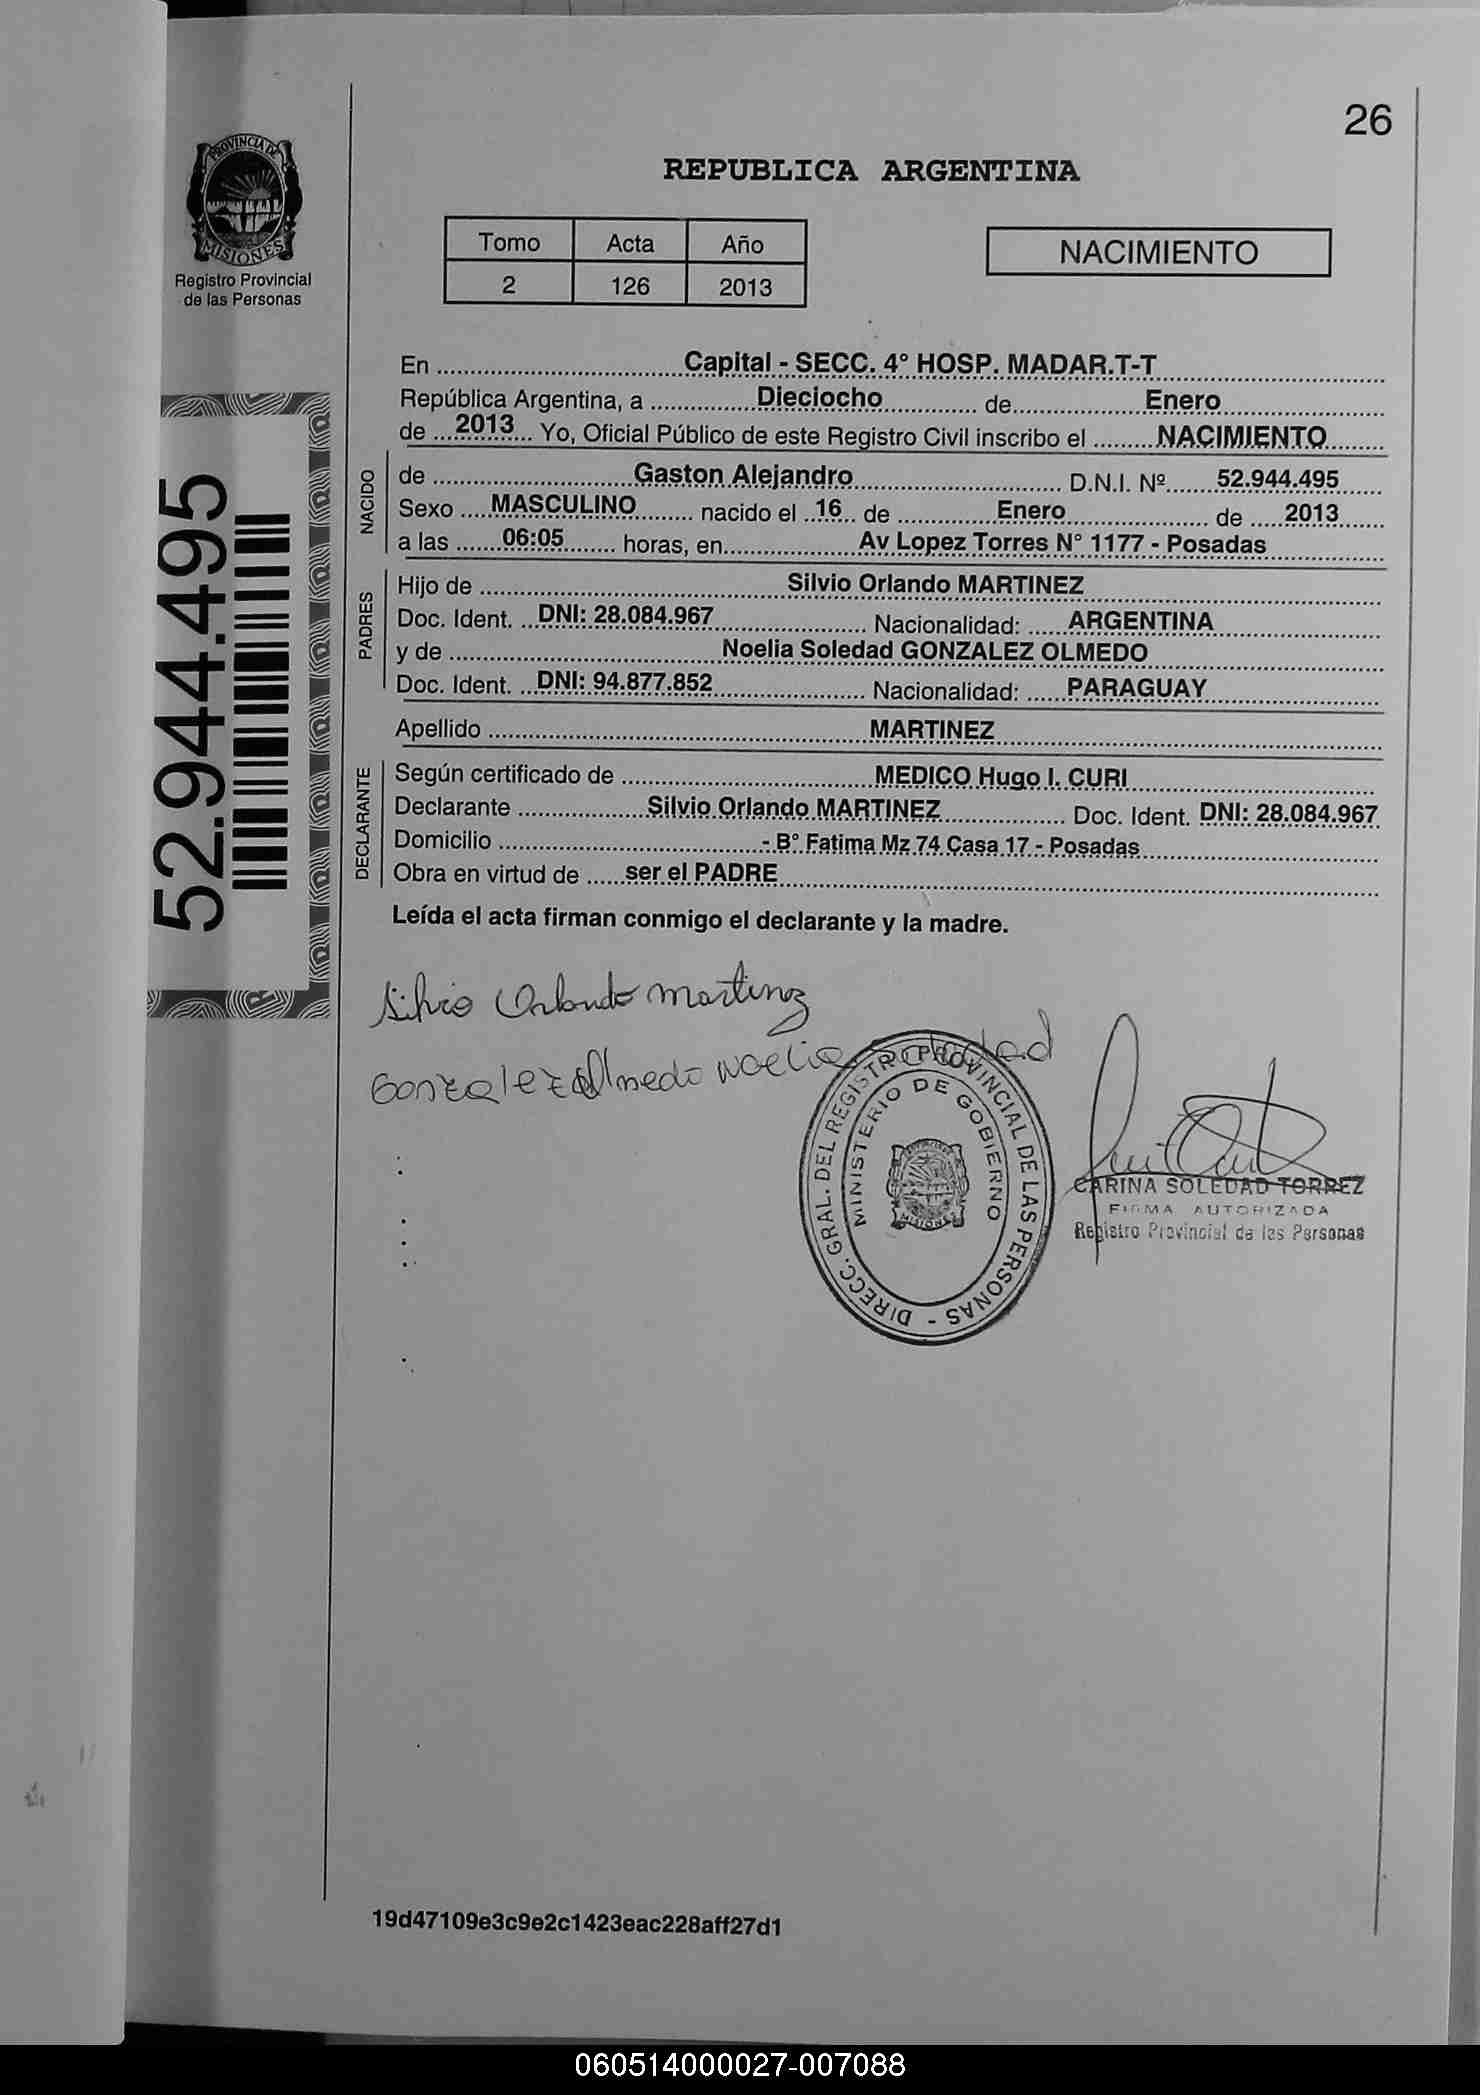 26
PROVINCIA DE
MISIONES
Registro Provincial
de las Personas
REPUBLICA ARGENTINA
Tomo Acta Año
2 126 2013
NACIMIENTO
En Capital - SECC. 4° HOSP. MADAR.T-T
República Argentina, a Dieciocho de Enero
de 2013 Yo, Oficial Público de este Registro Civil inscribo el NACIMIENTO
NACIDO
de Gaston Alejandro D.N.I. Nº 52.944.495
Sexo MASCULINO nacido el 16 de Enero de 2013
a las 06:05 horas, en Av Lopez Torres N° 1177 - Posadas
PADRES
Hijo de Silvio Orlando MARTINEZ
Doc. Ident. DNI: 28.084.967 Nacionalidad: ARGENTINA
y de Noelia Soledad GONZALEZ OLMEDO
Doc. Ident. DNI: 94.877.852 Nacionalidad: PARAGUAY
Apellido MARTINEZ
DECLARANTE
Según certificado de MEDICO Hugo I. CURI
Declarante Silvio Orlando MARTINEZ Doc. Ident. DNI: 28.084.967
Domicilio - B° Fatima Mz 74 Casa 17 - Posadas
Obra en virtud de ser el PADRE
Leída el acta firman conmigo el declarante y la madre.
52.944.495
Silvio Orlando Martinez
Gonzalez Olmedo Noelia Soledad
DIRECC. GRAL. DEL REGISTRO PROVINCIAL DE LAS PERSONAS -
MINISTERIO DE GOBIERNO
MISIONES
CARINA SOLEDAD TORREZ
FIRMA AUTORIZADA
Registro Provincial de las Personas
19d47109e3c9e2c1423eac228aff27d1
060514000027-007088